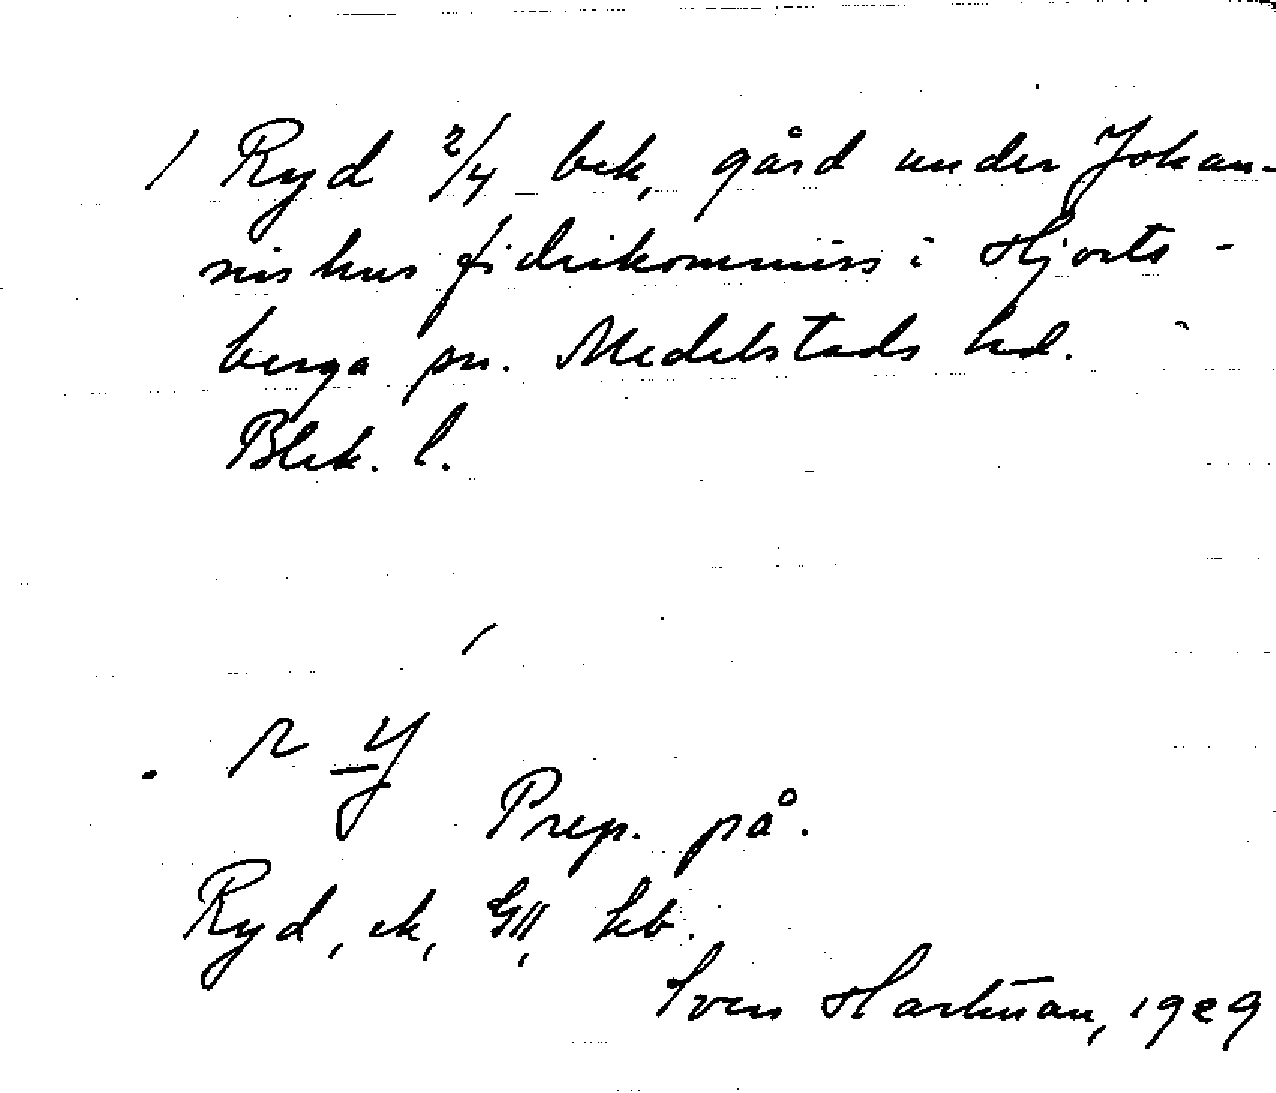 1 Ryd 2/4 bek, gård under Johan-
nishus fideikommiss i Hjorts-
berga sn. Medelstads hd.
Blek. l.
Prep. på.
Ryd, ek, GII, hb.
Sven Hartman, 1929